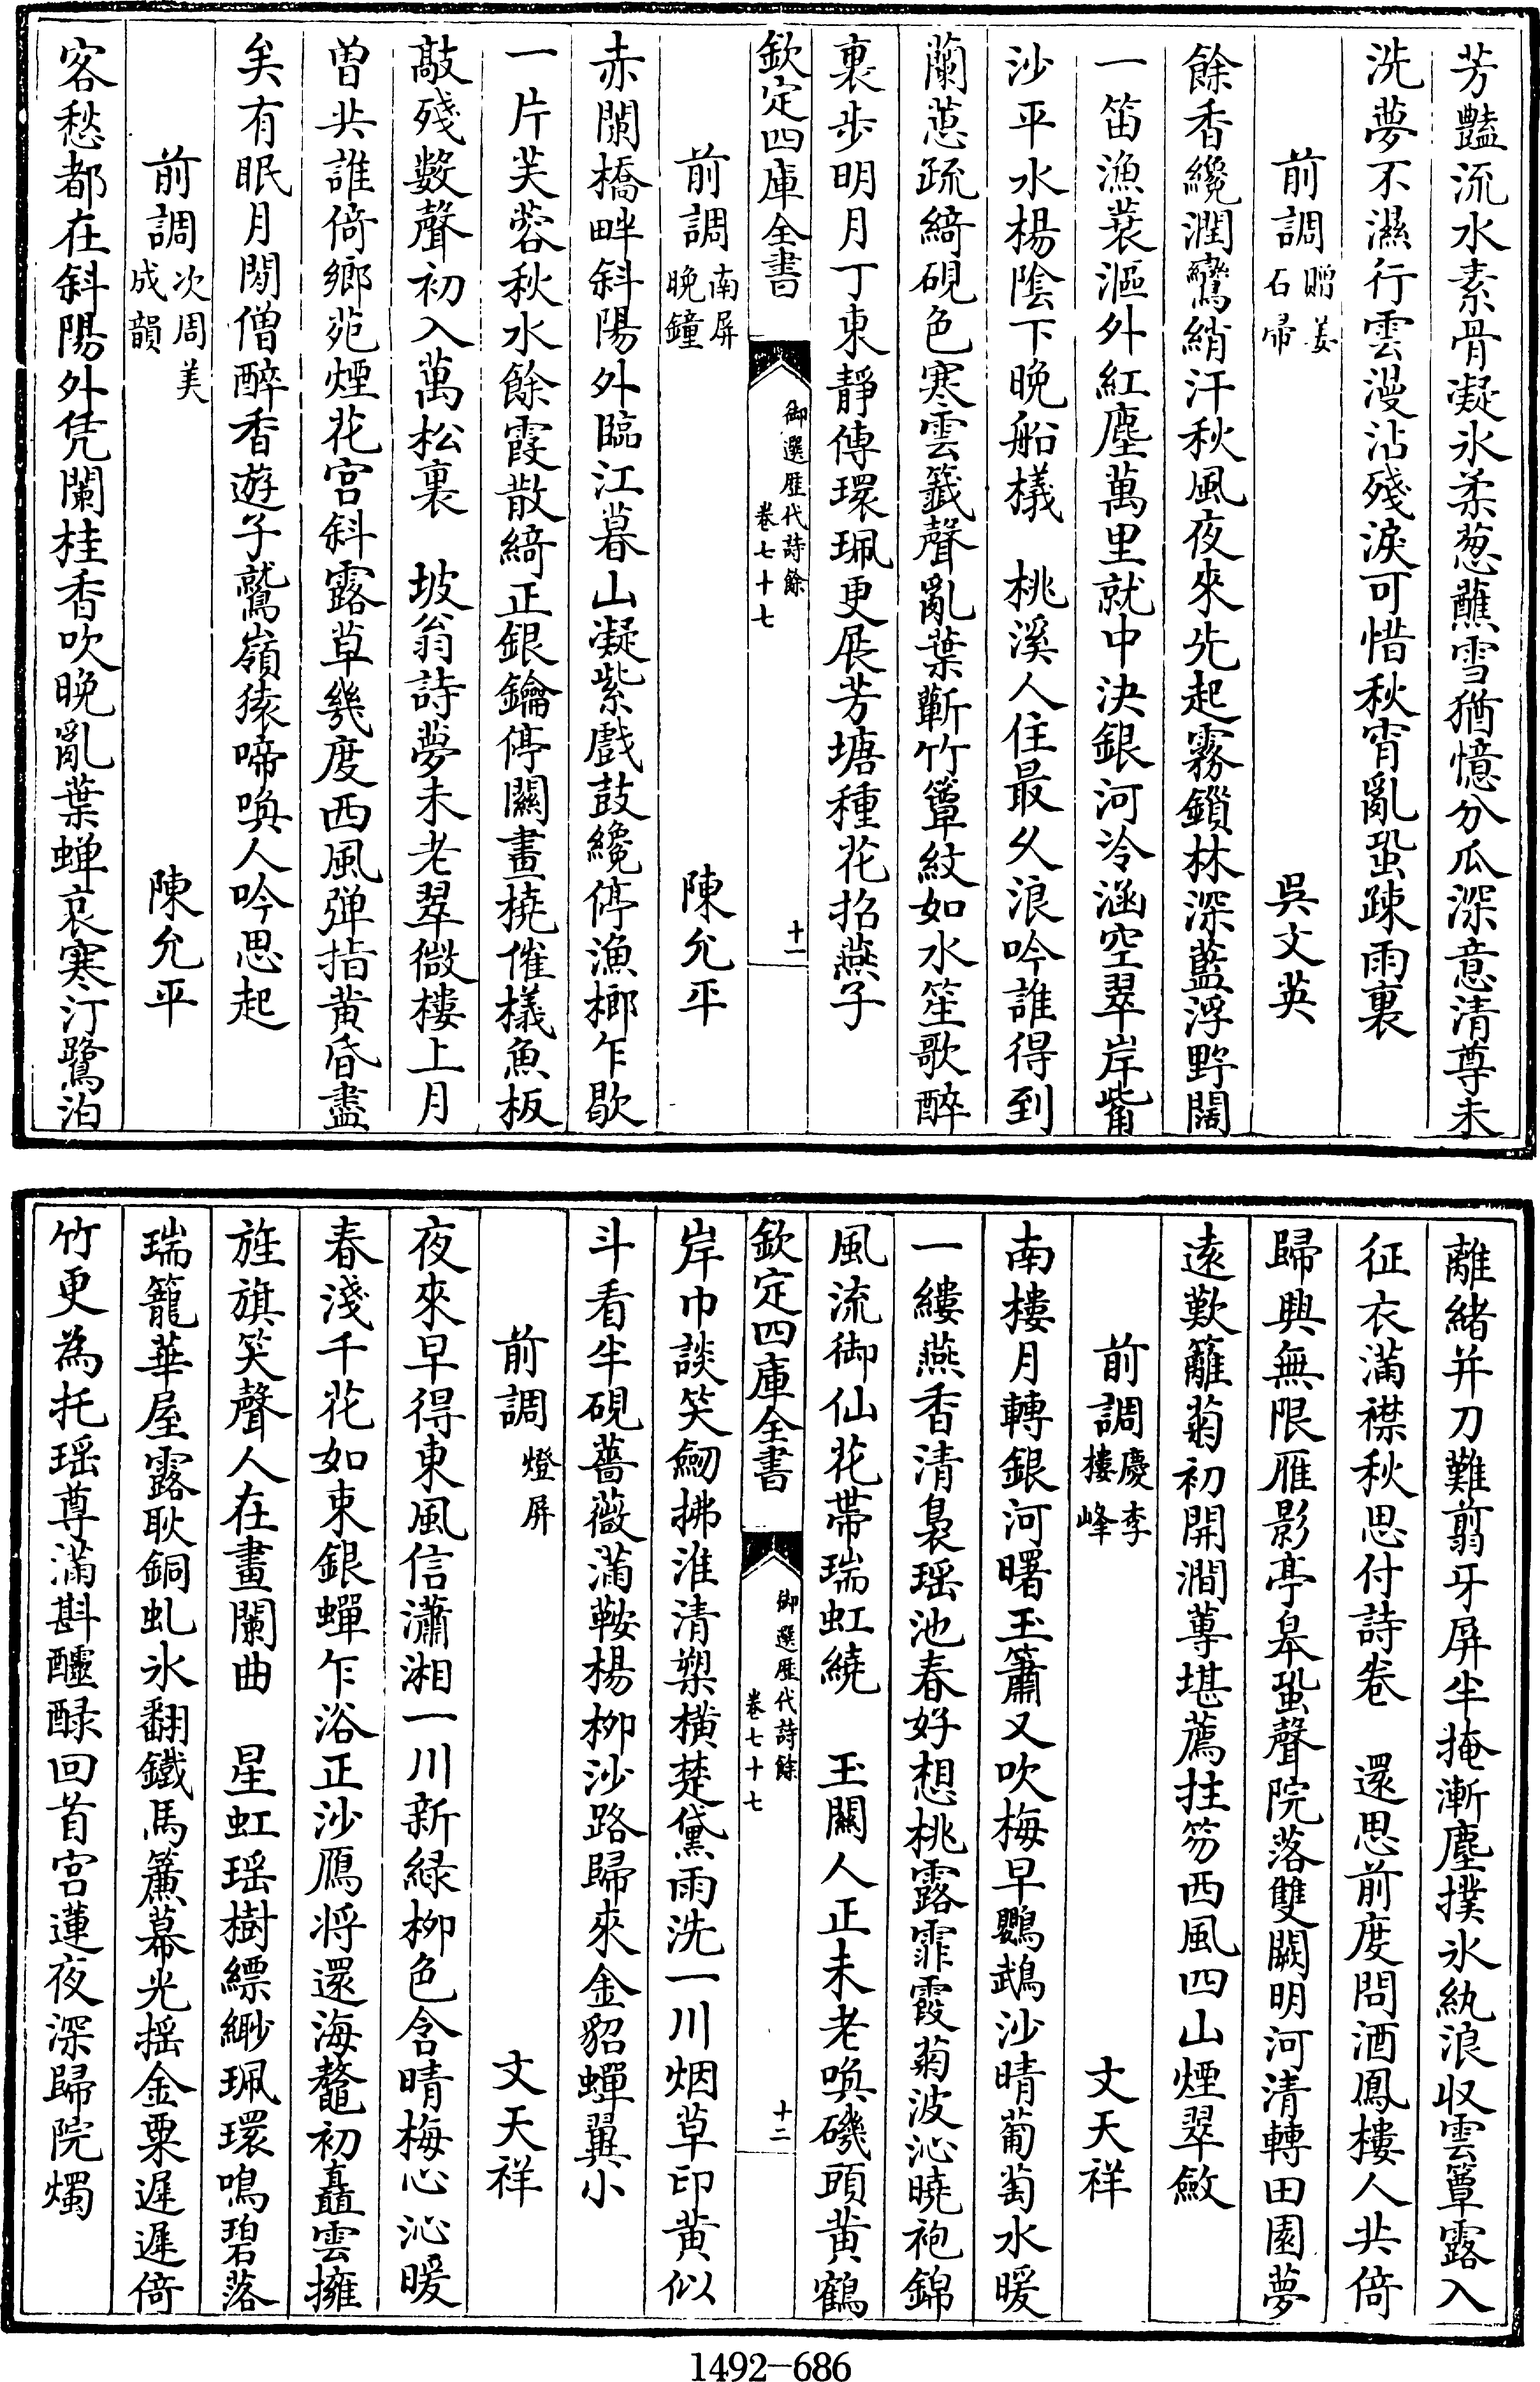 芳豔流水素骨凝氷柔葱蘸雪猶憶分瓜深意清尊未
洗夢不濕行雲漫沾殘淚可惜秋宵亂蛩疎雨裏
前調 贈姜石帚 吳文英
餘香纔潤鸞綃汗秋風夜來先起霧鎖林深藍浮野闊
一笛漁蓑漚外紅塵萬里就中決銀河冷涵空翠岸觜
沙平水楊陰下晚船檥　桃溪人住最乆浪吟誰得到
蘭蕙疏綺硯色寒雲籖聲亂葉蘄竹簟紋如水笙歌醉
裏步明月丁東靜傳環珮更展芳塘種花招燕子
欽定四庫全書 御選歴代詩餘 卷七十七 十一
前調 南屏晚鐘 陳允平
赤闌橋畔斜陽外臨江暮山凝紫戲鼓纔停漁榔乍歇
一片芙蓉秋水餘霞散綺正銀鑰停關畫橈催檥魚板
敲殘數聲初入萬松裏　坡翁詩夢未老翠微樓上月
曽共誰倚鄉苑煙花宮斜露草幾度西風弹指黄昏盡
矣有眠月閒僧醉香遊子鷲嶺猿啼喚人吟思起
前調 次周美成韻 陳允平
客愁都在斜陽外凭闌桂香吹晚亂葉蝉哀寒汀鷺泊
離緒并刀難翦牙屏半掩漸塵撲氷紈浪収雲簟露入
征衣滿襟秋思付詩卷　還思前度問酒鳳樓人共倚
歸興無限雁影亭皋蛩聲院落雙闕明河清轉田園夢
遠歎籬菊初開澗蓴堪薦拄笏西風四山煙翠斂
前調 慶李樓峰 文天祥
南樓月轉銀河曙玉簫又吹梅早鸚鵡沙晴葡萄水暖
一縷燕香清裊瑶池春好想桃露霏霞菊波沁曉袍錦
風流御仙花帶瑞虹繞　玉關人正未老喚磯頭黄鶴
欽定四庫全書 御選歴代詩餘 卷七十七 十二
岸巾談笑劒拂淮清槊橫楚黛雨洗一川烟草印黄似
斗看半硯薔薇滿鞍楊柳沙路歸來金貂蟬翼小
前調 燈屏 文天祥
夜來早得東風信瀟湘一川新緑柳色含晴梅心沁暖
春淺千花如束銀蟬乍浴正沙鴈将還海鼇初矗雲擁
旌旗笑聲人在畫闌曲　星虹瑶樹縹緲珮環鳴碧落
瑞籠華屋露耿銅虬氷翻鐵馬簾幕光揺金粟遲遲倚
竹更為托瑶尊滿斟醽醁回首宫蓮夜深歸院燭
1492—686